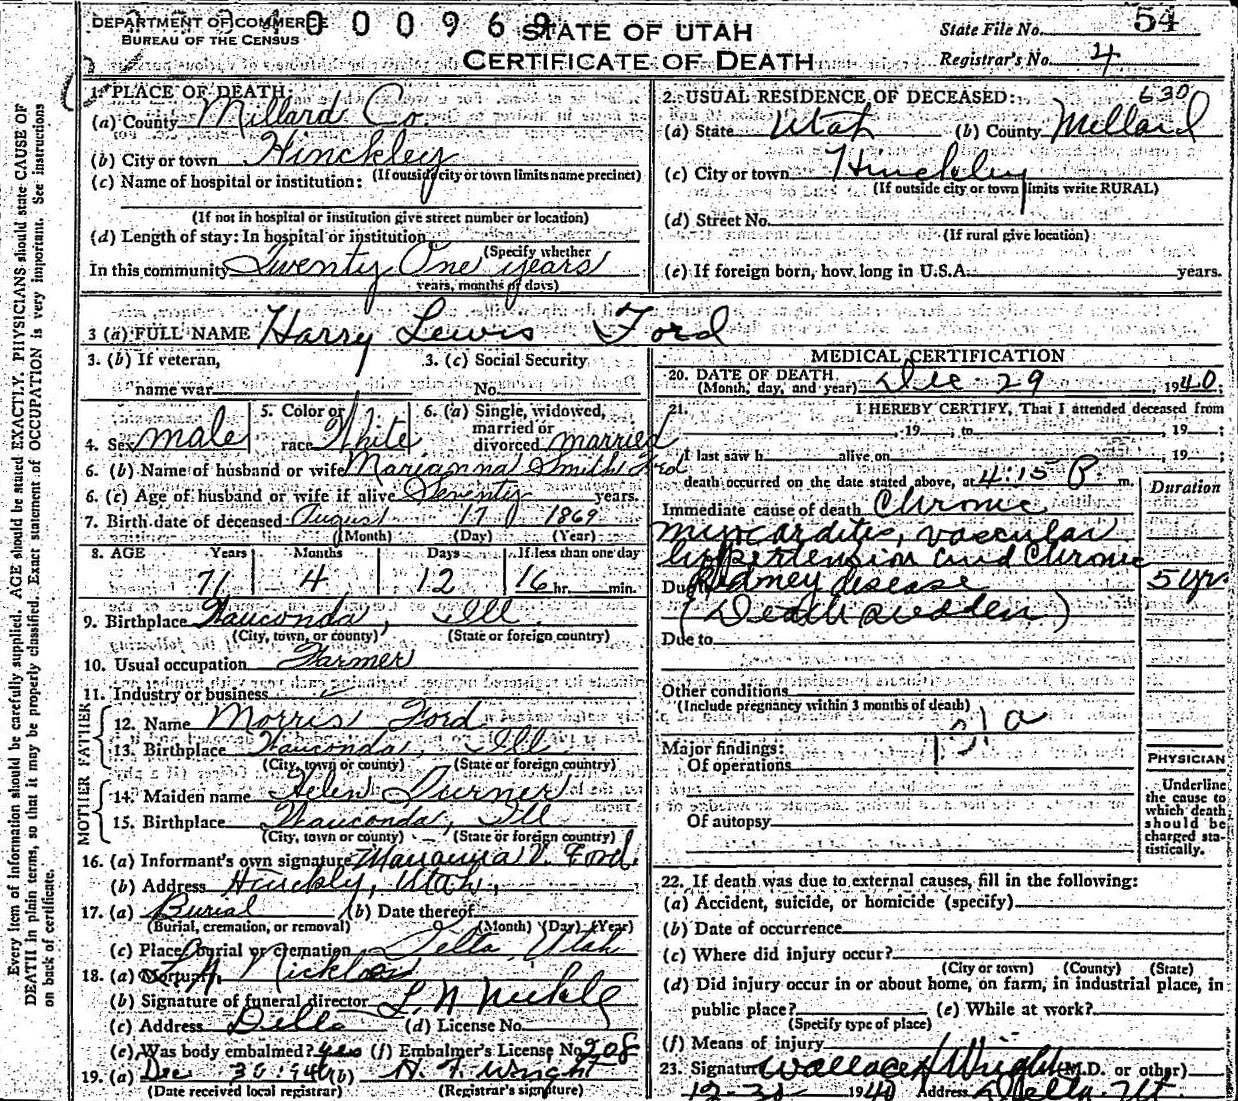 DEPARTMENT OF COMMERCE
BUREAU OF THE CENSUS
4 0 0 0 9 6 9
STATE OF UTAH
CERTIFICATE OF DEATH
State File No. 54
Registrar's No. 4
1. PLACE OF DEATH:
(a) County Millard Co.
(b) City or town Hinckley
(If outside city or town limits name precinct)
(c) Name of hospital or institution:
(If not in hospital or institution give street number or location)
(d) Length of stay: In hospital or institution
(Specify whether
In this community Twenty One years
years, months or days)
2. USUAL RESIDENCE OF DECEASED:
630
(a) State Utah (b) County Millard
(c) City or town Hinckley
(If outside city or town limits write RURAL)
(d) Street No.
(If rural give location)
(e) If foreign born, how long in U.S.A. years.
3 (a) FULL NAME Harry Lewis Ford
3. (b) If veteran,
name war
3. (c) Social Security
No.
4. Sex male
5. Color or
race White
6. (a) Single, widowed,
married or
divorced married
6. (b) Name of husband or wife Marianna Smith Ford
6. (c) Age of husband or wife if alive Seventy years.
7. Birth date of deceased August 17 1869
(Month) (Day) (Year)
8. AGE Years Months Days If less than one day
71 4 12 16 hr. min.
9. Birthplace Wauconda, Ill.
(City, town, or county) (State or foreign country)
10. Usual occupation Farmer
11. Industry or business
FATHER
12. Name Morris Ford
13. Birthplace Wauconda, Ill.
(City, town or county) (State or foreign country)
MOTHER
14. Maiden name Helen
15. Birthplace Wauconda, Ill
(City, town or county) (State or foreign country)
16. (a) Informant's own signature Marianna V. Ford
(b) Address Hinckley, Utah,
17. (a) Burial (b) Date thereof
(Burial, cremation, or removal) (Month) (Day) (Year)
(c) Place burial or cremation Delta, Utah
18. (a) Mortuary
(b) Signature of funeral director L. N.
(c) Address Delta (d) License No.
(e) Was body embalmed? yes (f) Embalmer's License No. 208
19. (a) Dec 30 1940 (b) H. F. Wright
(Date received local registrar) (Registrar's signature)
MEDICAL CERTIFICATION
20. DATE OF DEATH
(Month, day, and year) Dec 29, 1940;
21. I HEREBY CERTIFY, That I attended deceased from
, 19 ; to , 19 ;
I last saw h alive on , 19 ;
death occurred on the date stated above, at 4:15 P. m.
Duration
Immediate cause of death Chronic
myocarditis, vascular
hypertension and Chronic
Due to Kidney disease 5 yrs
(Death sudden)
Due to
Other conditions
(Include pregnancy within 3 months of death)
Major findings:
Of operations
PHYSICIAN
Underline
the cause to
which death
should be
charged sta-
tistically.
Of autopsy
22. If death was due to external causes, fill in the following:
(a) Accident, suicide, or homicide (specify)
(b) Date of occurrence
(c) Where did injury occur?
(City or town) (County) (State)
(d) Did injury occur in or about home, on farm, in industrial place, in
public place? (e) While at work?
(Specify type of place)
(f) Means of injury
23. Signature Wallace Wright (M.D. or other)
12-30 1940 Address Delta, Ut.
Every item of information should be carefully supplied. AGE should be stated EXACTLY. PHYSICIANS should state CAUSE OF
DEATH in plain terms, so that it may be properly classified. Exact statement of OCCUPATION is very important. See instructions
on back of certificate.